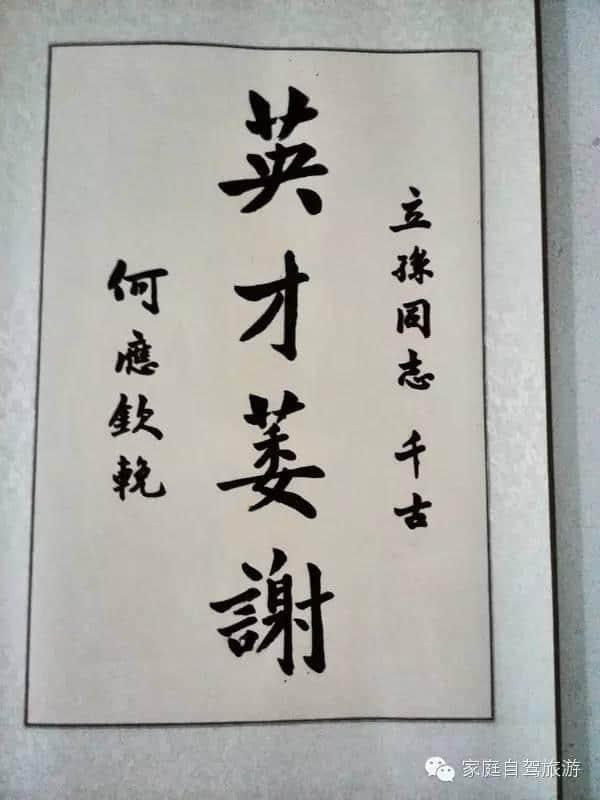 立孫同志 千古
英才萎謝
何應欽輓
家庭自驾旅游